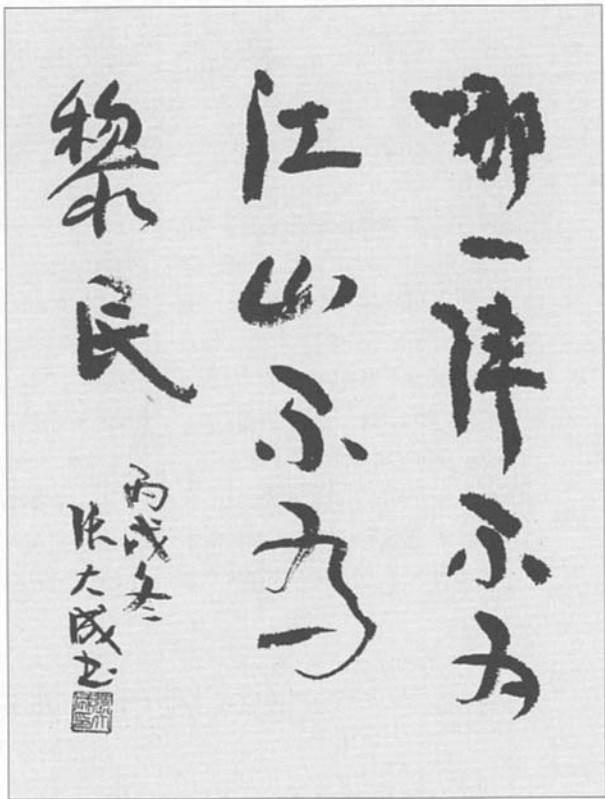 哪一阵不为
江山不为
黎民
丙戌冬
张大成书